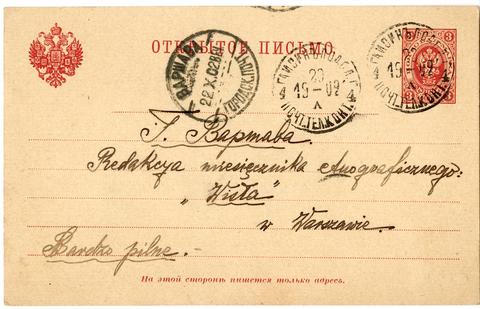 ОТКРЫТОЕ ПИСЬМО.
3
ВАРШАВА
22.X.02
20
4 19-02 4
X
ПОЧТ.ТЕЛ.КОНТ.
20
4 19-02 4
X
ПОЧТ.ТЕЛ.КОНТ.
Г. Варшава.
Redakcya miesięcznika etnograficznego:
„Wisła”
w Warszawie.
Bardzo pilne.
На этой сторонѣ пишется только адресъ.